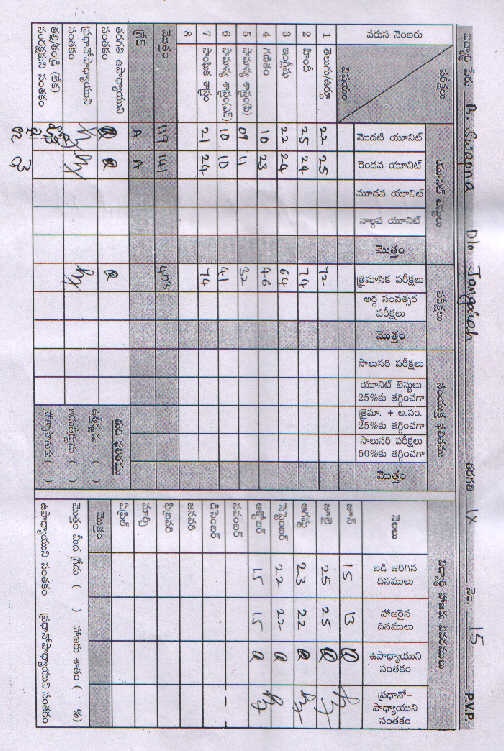 విద్యార్థి పేరు A. Swapna D/o Jangaiah తరగతి IX నెం. 15 P.V.P.
పరీక్షలు యూనిట్ పరీక్షలు పరీక్షలు
వరుస నెంబరు విషయం మొదటి యూనిట్ రెండవ యూనిట్ మూడవ యూనిట్ నాల్గవ యూనిట్ మొత్తం త్రైమాసిక పరీక్షలు అర్థ సంవత్సర పరీక్షలు మొత్తం సాలుసరి పరీక్షలు యూనిట్ టెస్టులు 25%కు తగ్గించగా త్రైమా. + అ.సం. 25%కు తగ్గించగా సాలుసరి పరీక్షలు 50%కు తగ్గించగా మొత్తం
1 తెలుగు/ఉర్దూ 22 25 72
2 హిందీ 25 24 74
3 ఇంగ్లీషు 22 24 64
4 గణితం 10 23 46
5 సామాన్య శాస్త్రం 09 11 32
6 సామాన్య శాస్త్రం 10 10 41
7 సాంఘిక శాస్త్రం 21 24 74
8
మొత్తం 119 141 403
గ్రేడ్ A A
తరగతి ఉపాధ్యాయుని సంతకం
ప్రధానోపాధ్యాయుని సంతకం
తల్లి/తండ్రి (లేక) సంరక్షకుని సంతకం
విద్యార్థి హాజరు వివరములు
నెలలు బడి జరిగిన దినములు హాజరైన దినములు ఉపాధ్యాయుని సంతకం ప్రధానోపాధ్యాయుని సంతకం
జూన్ 15 13
జూలై 25 25
ఆగస్టు 23 22
సెప్టెంబర్ 22 22
అక్టోబర్ 15 15
నవంబర్
డిసెంబర్
జనవరి
ఫిబ్రవరి
మార్చి
ఏప్రిల్
మొత్తం
మొత్తం మీద గ్రేడు ( ) హాజరు శాతం ( %)
ఉపాధ్యాయుని సంతకం ప్రధానోపాధ్యాయుని సంతకం